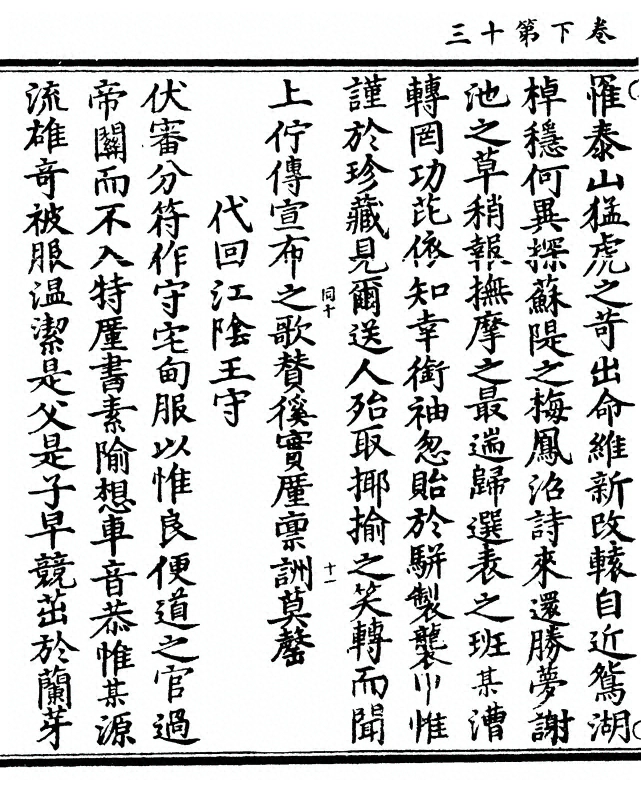 卷下第十三
罹泰山猛虎之苛出命維新改轅自近鴛湖
棹穩何異探蘇隄之梅鳳沼詩來還勝夢謝
池之草稍報撫摩之最遄歸選表之班某漕
轉罔功芘依知幸銜袖忽貽於駢製襲巾惟
謹於珍藏見爾送人殆取揶揄之笑轉而聞
上佇傳宣布之歌贊徯實厪稟詶莫罄
同十
十一
代回江陰王守
伏審分符作守宅甸服以惟良便道之官過
帝關而不入特厪書素隃想車音恭惟某源
流雄奇被服温潔是父是子早競茁於蘭芽